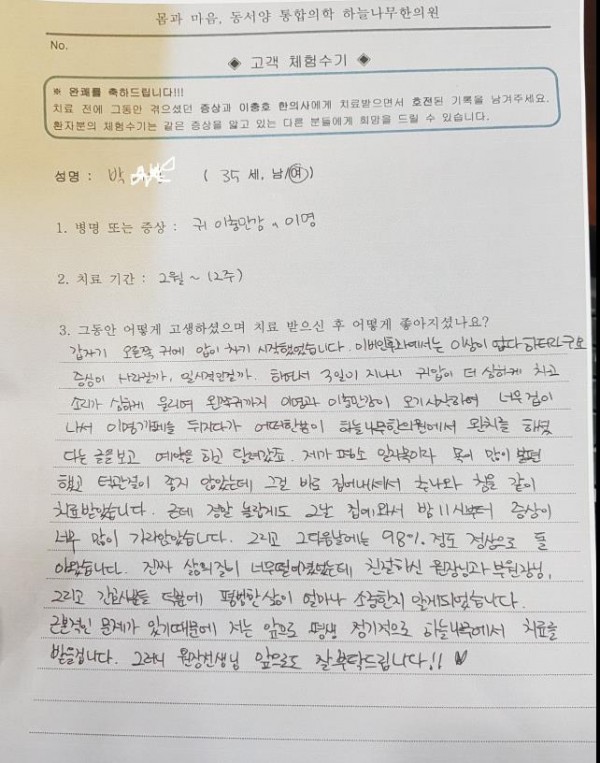 몸과 마음, 동서양 통합의학 하늘나무한의원
No.
◈ 고객 체험수기 ◈
※ 완쾌를 축하드립니다!!!
치료 전에 그동안 겪으셨던 증상과 이충호 한의사에게 치료받으면서 호전된 기록을 남겨주세요.
환자분의 체험수기는 같은 증상을 앓고 있는 다른 분들에게 희망을 드릴 수 있습니다.
성명 : 박 ( 35 세, 남/여)
1. 병명 또는 증상 : 귀 이충만감 이명
2. 치료 기간 : 2월 ~ (2주)
3. 그동안 어떻게 고생하셨으며 치료 받으신 후 어떻게 좋아지셨나요?
갑자기 오른쪽 귀에 압이 차기 시작했었습니다. 이비인후과에서는 이상이 없다 하더라구요
증상이 사라질까, 일시적인걸까. 하면서 3일이 지나니 귀압이 더 심하게 차고
소리가 심하게 울리며 왼쪽귀까지 이명과 이충만감이 오기시작하여 너무 겁이
나서 이명카페를 뒤지다가 어떠한분이 하늘나무한의원에서 완치를 해냈
다는 글을보고 예약을 하고 달려갔죠. 제가 평소 일자목이라 목이 많이 불편
했고 턱관절이 좋지 않았는데 그걸 바로 집어내셔서 추나와 침을 같이
치료받았습니다. 근데 정말 놀랍게도 그날 집에와서 밤 11시부터 증상이
너무 많이 가라앉았습니다. 그리고 그다음날에는 98% 정도 정상으로 돌
아왔습니다. 진짜 삶의질이 너무떨어졌었는데 친절하신 원장님과 부원장님,
그리고 간호사분들 덕분에 평범한 삶이 얼마나 소중한지 알게되었습니다.
근본적인 문제가 있기때문에 저는 앞으로 평생 정기적으로 하늘나무에서 치료를
받을겁니다. 그러니 원장선생님 앞으로도 잘부탁드립니다!! ♥